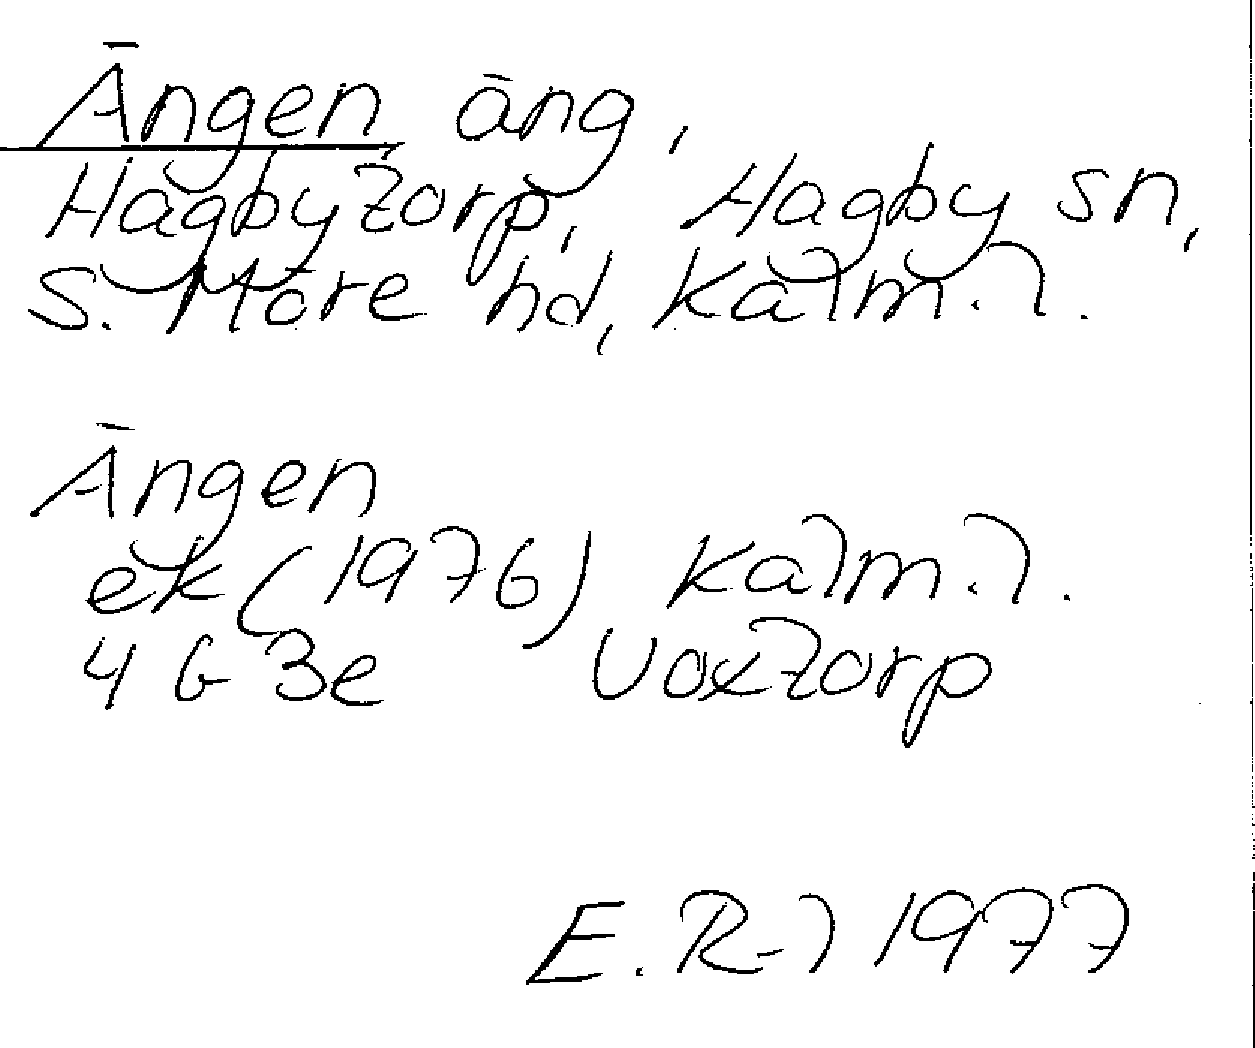 Ängen äng,
Hagbytorp, Hagby sn,
S. Möre hd, Kalm. l.
Ängen
ek (1976) Kalm. l.
4 G 3e Voxtorp
E. R-l 1977